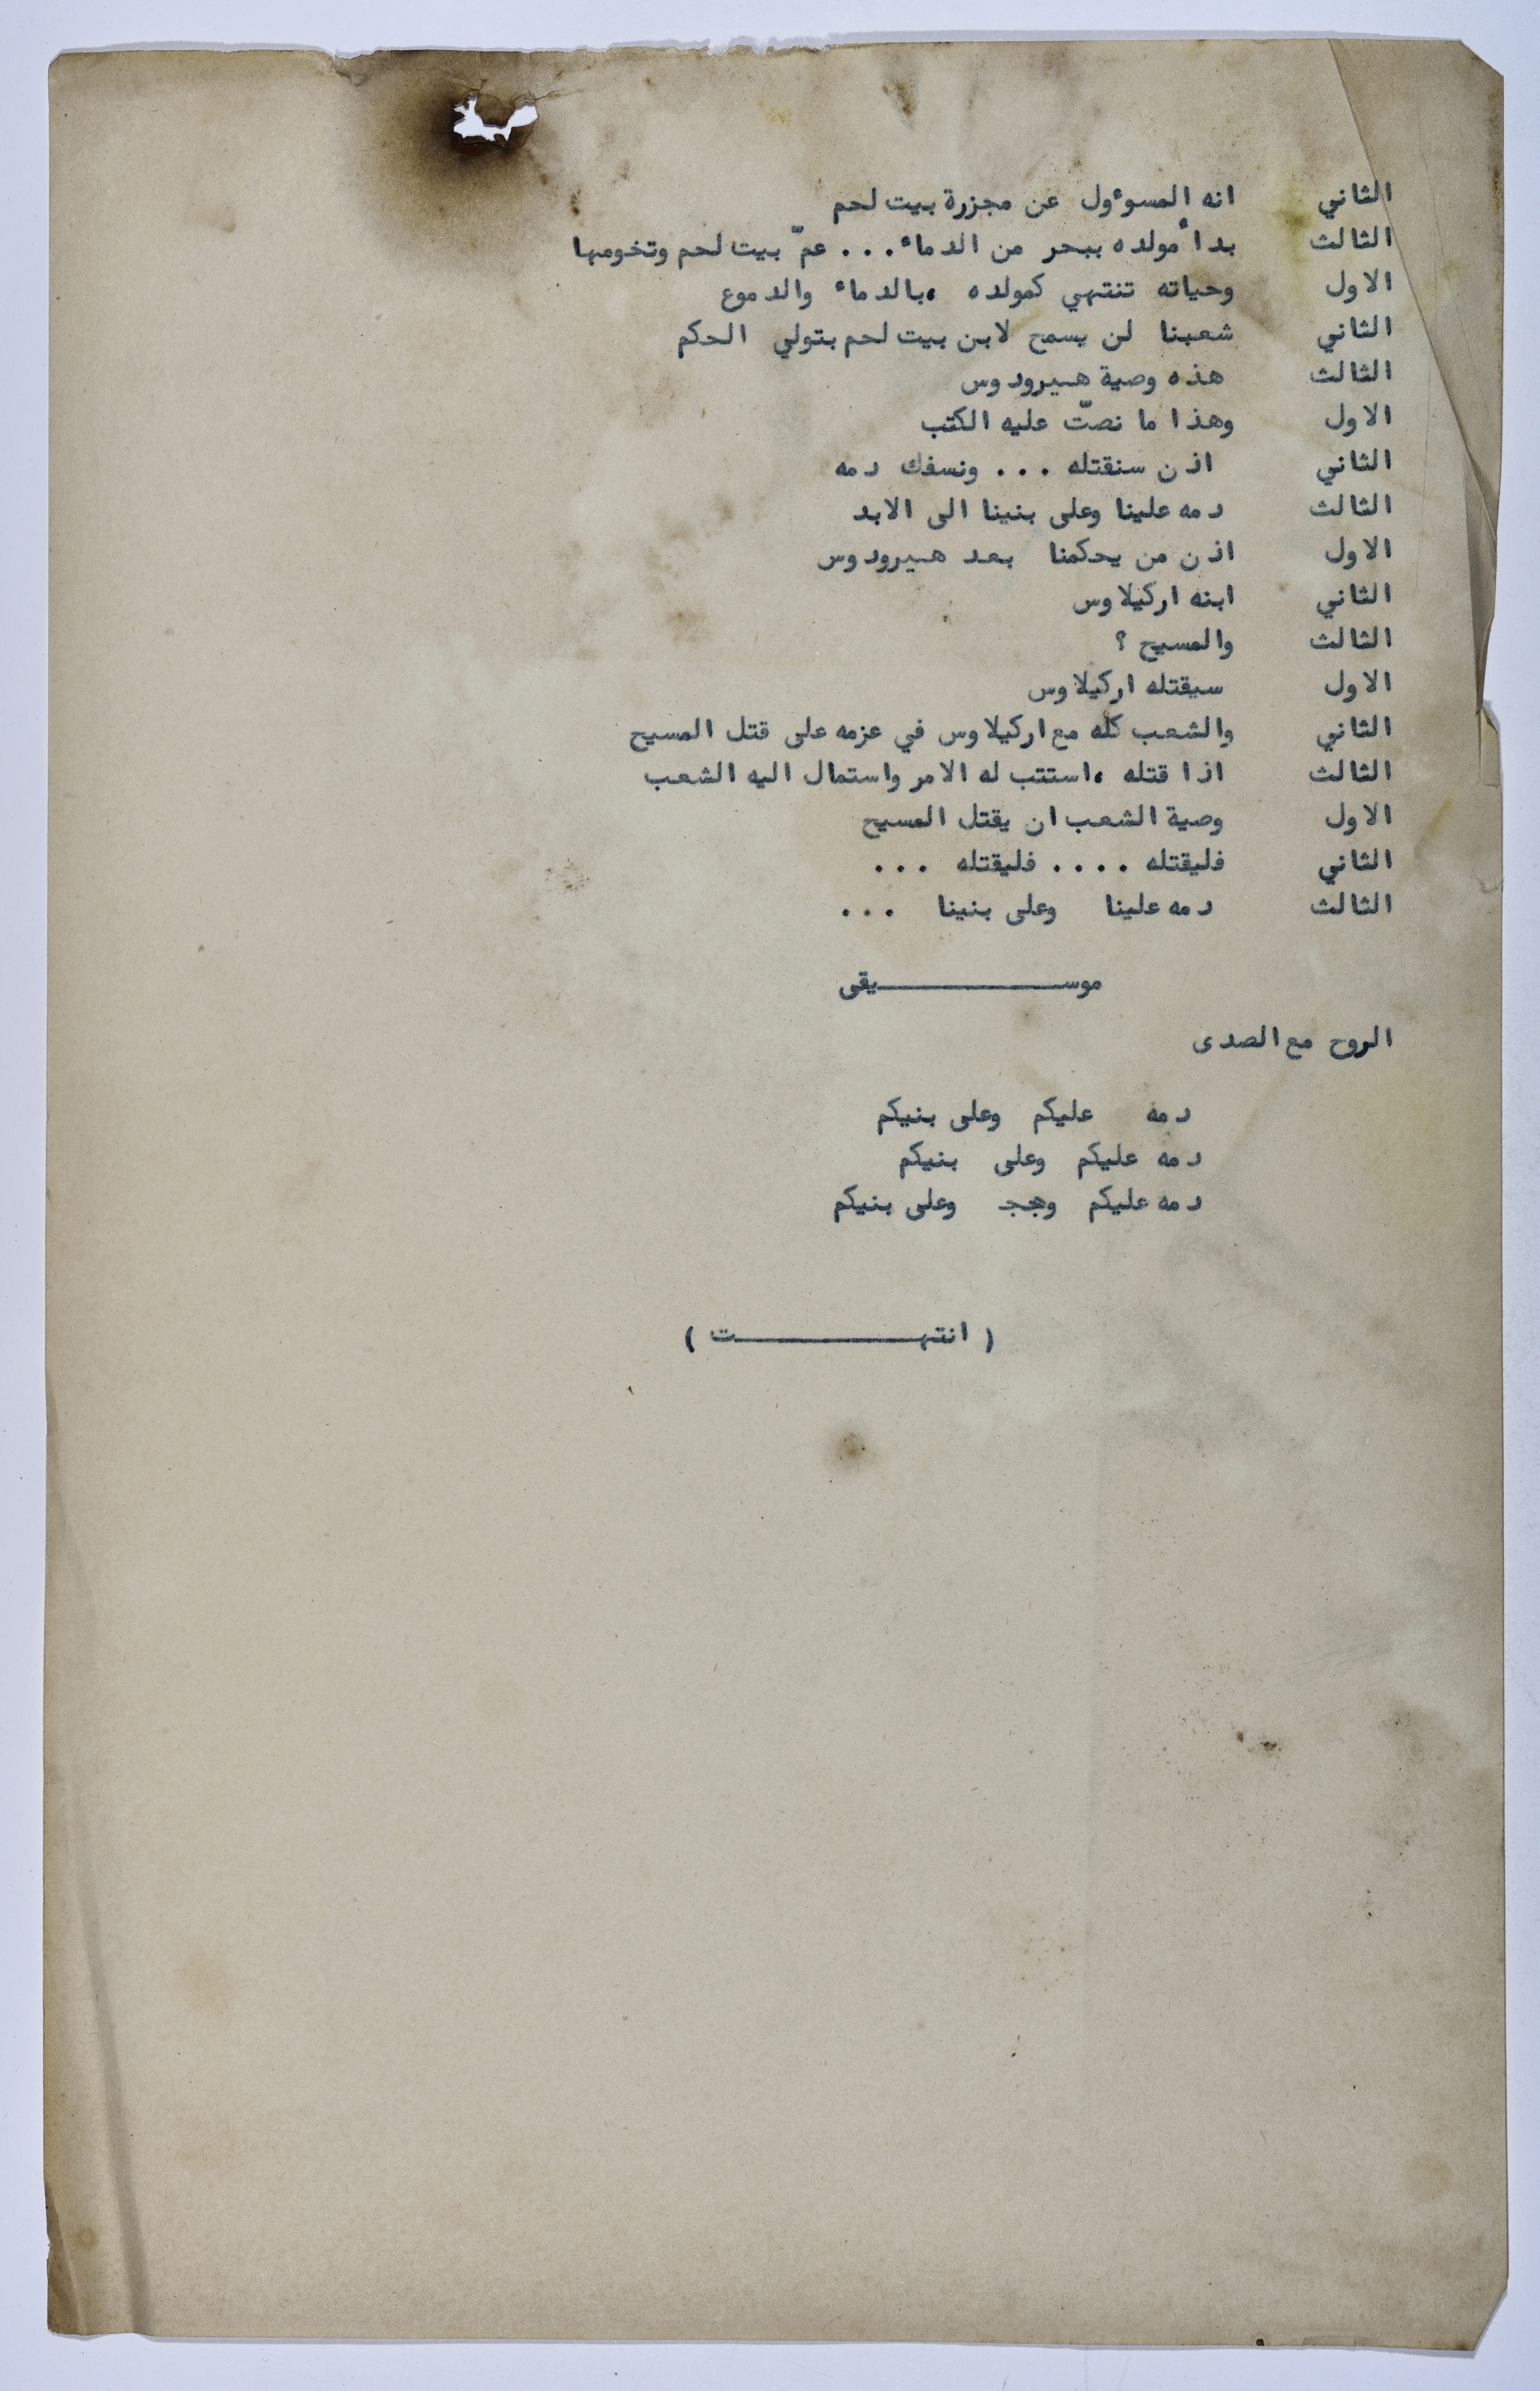 الثاني انه المسوءول عن مجزرة بيت لحم
الثالث بدأ مولده ببحر من الدماء ... عمّ بيت لحم وتخومها
الاول وحياته تنتهي كمولده ،بالدماء والدموع
الثاني شعبنا لن يسمح لابن بيت لحم بتولي الحكم
الثالث هذه وصية هيرودوس
الاول وهذا ما نصتّ عليه الكتب
الثاني اذن سنقتله ... ونسفك دمه
الثالث دمه علينا وعلى بنينا الى الابد
الاول اذن من يحكمنا بعد هيرودوس
الثاني ابنه اركيلاوس
الثالث والمسيح ؟
الاول سيقتله اركيلاوس
الثاني والشعب كله مع اركيلاوس في عزمه على قتل المسيح
الثالث اذا قتله ،استتب له الامر واستمال اليه الشعب
الاول وصية الشعب ان يقتل المسيح
الثاني فليقتله .... فليقتله ...
الثالث دمه علينا وعلى بنينا ...
موســـــــــــيقى
الروح مع الصدى
دمه عليكم وعلى بنيكم
دمه عليكم وعلى بنيكم
دمه عليكم وعلى بنيكم
( انتهـــــــــــت )